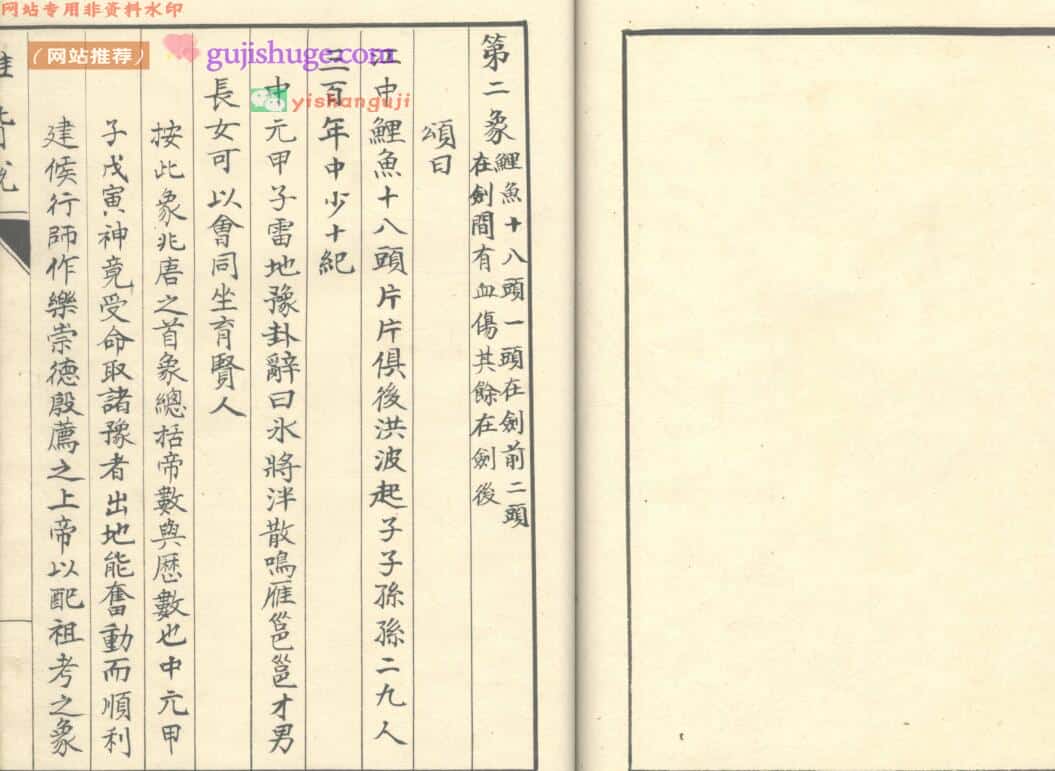 网站专用非资料水印
（网站推荐）
gujishuge.com
yishanguji
第二象
鯉魚十八頭一頭在劍前二頭
在劍間有血傷其餘在劍後
頌曰
江中鯉魚十八頭片片俱後洪波起子子孫孫二九人
三百年中少十紀
中元甲子雷地豫卦辭曰氷將泮散鳴雁邕邕才男
長女可以會同坐育賢人
按此象兆唐之首象總括帝數與歷數也中元甲
子戊寅神竟受命取諸豫者出地能奮動而順利
建候行師作樂崇德殷薦之上帝以配祖考之象